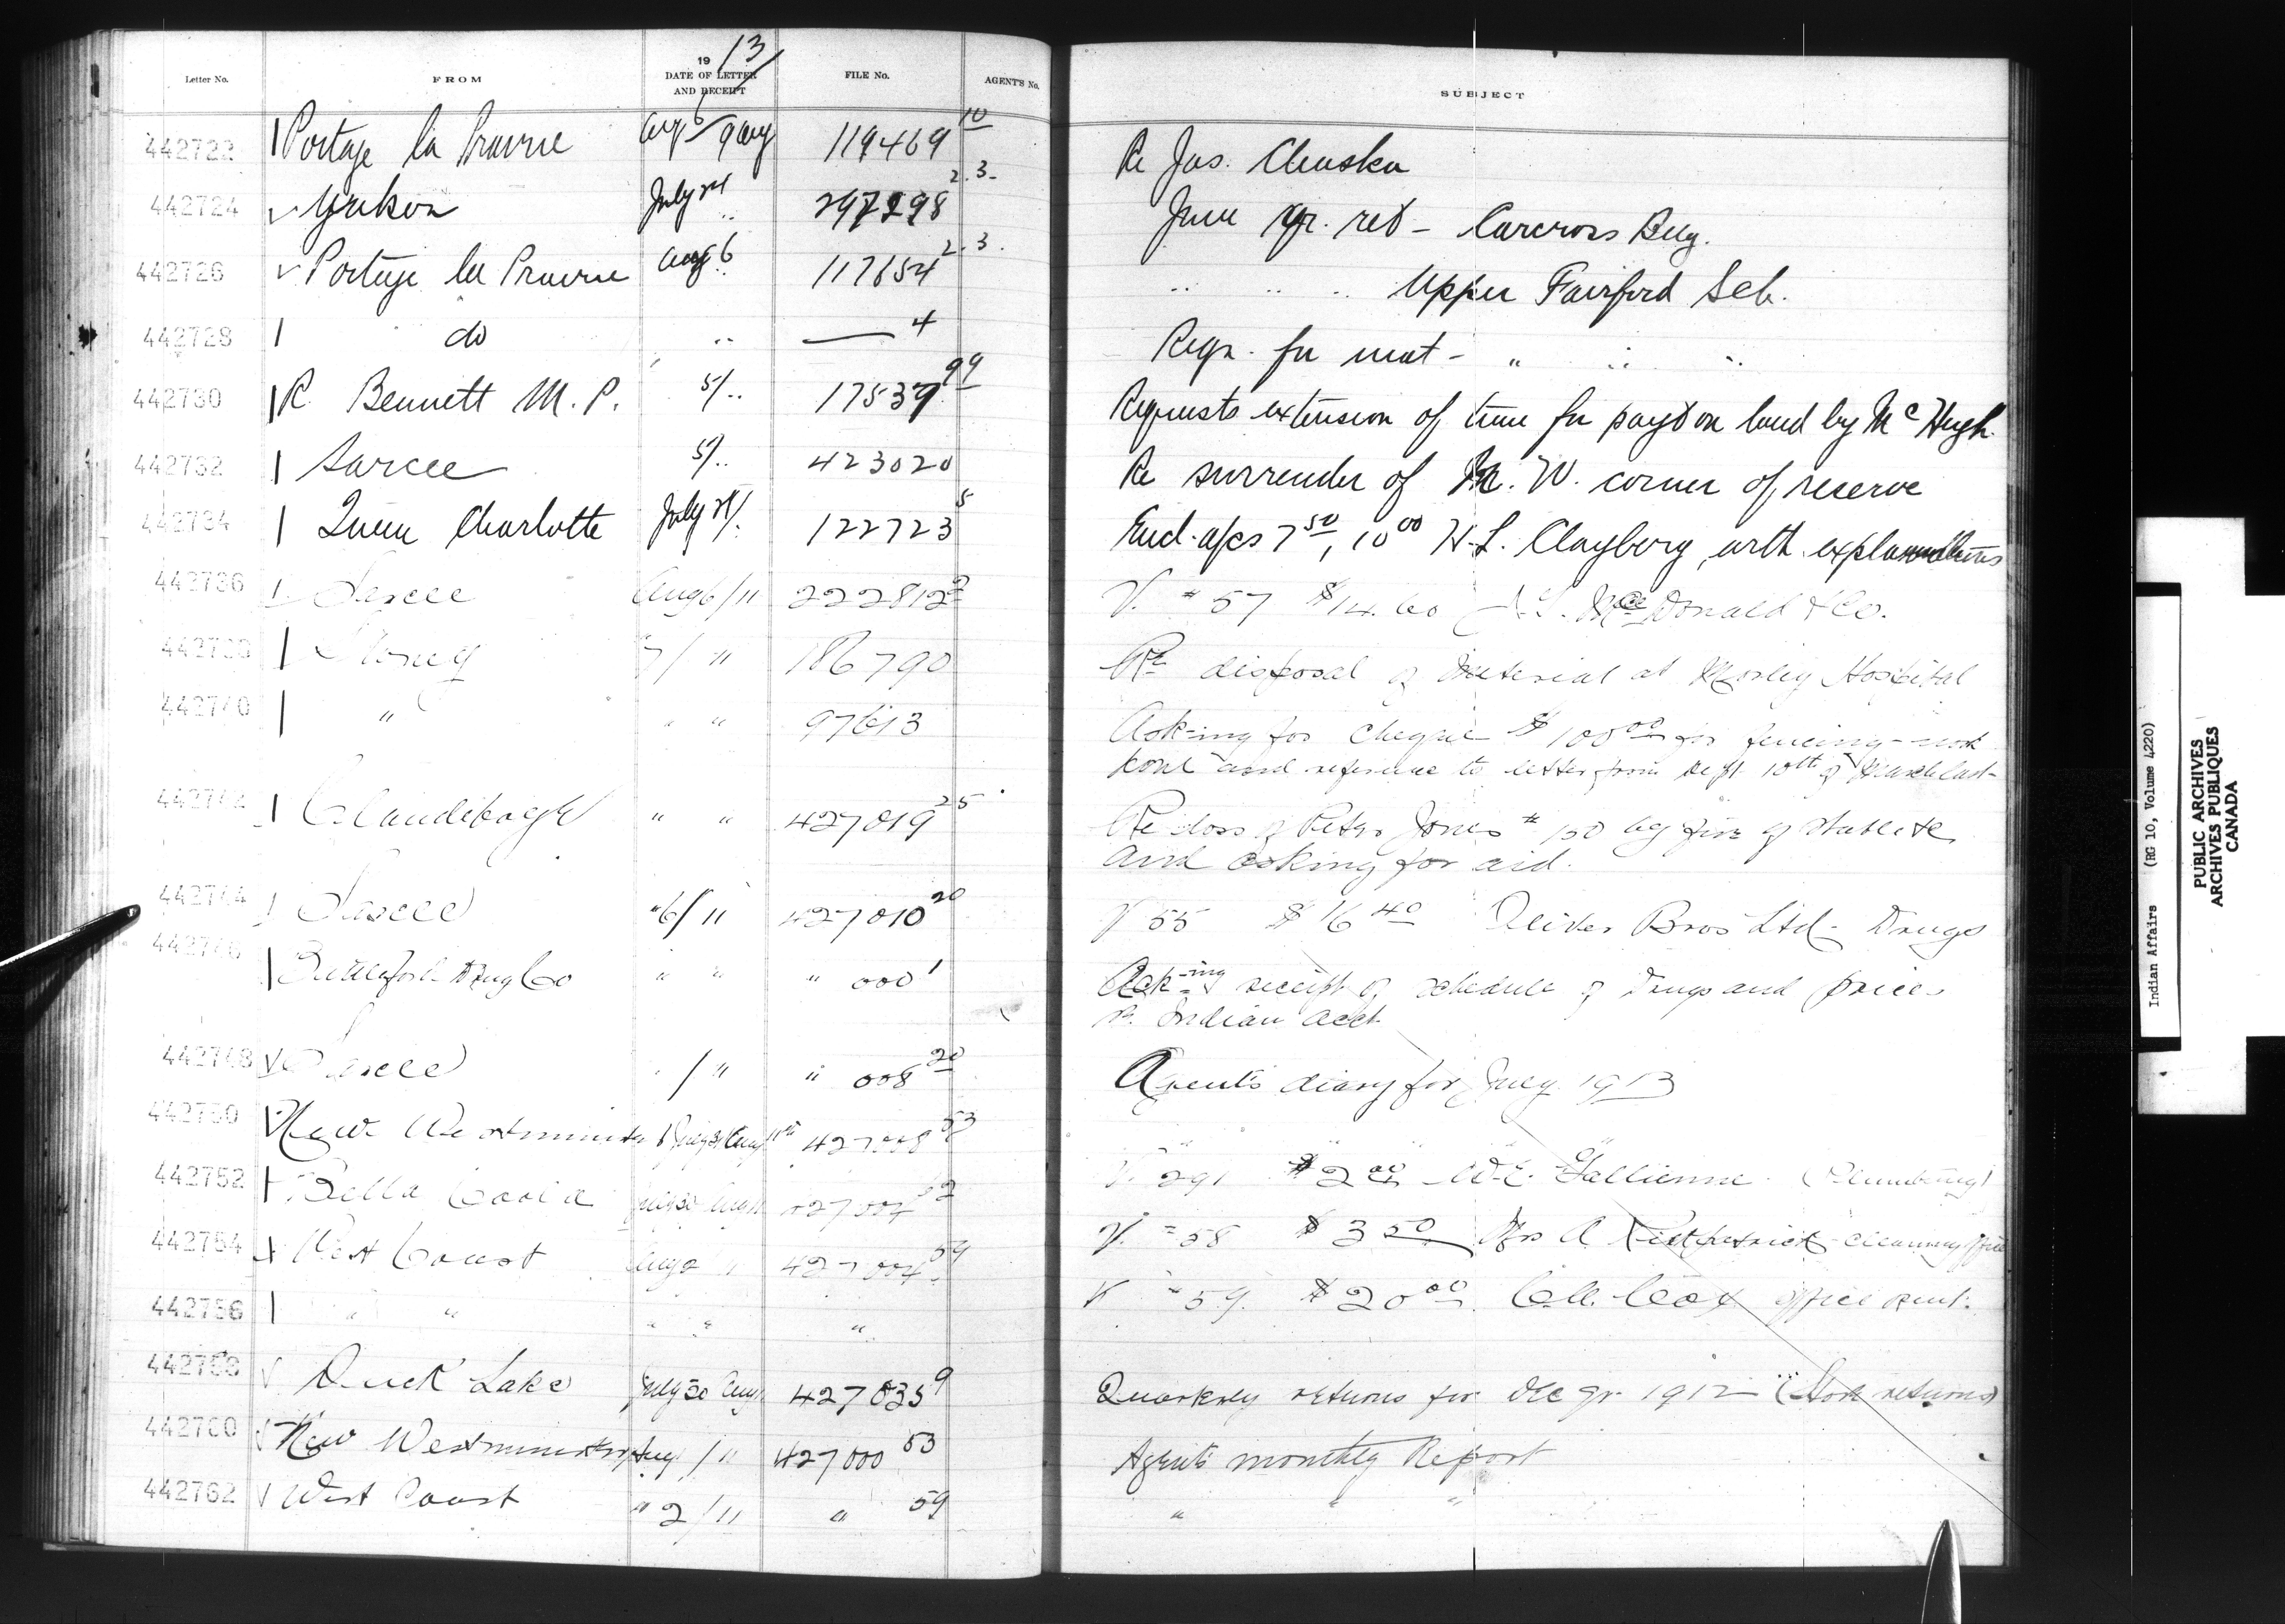 Letter No. FROM 19 13 DATE OF LETTER AND RECEIPT FILE No. AGENT'S No. SUBJECT
442722 Portage la Prairie Aug 6 9 Aug 119469 10 Re Jas. Chaska
442724 Yukon July 24 " 297298 2.3. June qr. ret - Carcross Bdg.
442726 Portage la Prairie Aug 6 " 117654 2.3. " " " Upper Fairford Sch.
442728 do " — 4 Reqn. for mat - " " "
442730 R Bennett M.P. 5/ " 17537 99 Requests extension of time for payt on land by McHugh.
442732 Sarcee 5/ " 423020 Re surrender of N.W. corner of reserve
442734 Queen Charlotte July 122723 5 Encl. a/cs 7 50, 10 00 H.L. Clayberg, with explanations
442736 Sarcee Aug 6/11 222812 2 V. # 57 $14.60 McDonald & Co.
Stoney 7/ " 186790 Re disposal of material at Morley Hospital
442740 " " " 97613 Ask-ing for cheque $100 00 for fencing-work
and reference to letter from Dept. 10th of March last-
" " 427019 25 Re loss of Peter Jones # by fire of stable &c
and asking for aid.
442744 Sarcee " 6/11 427010 20 V 55 $16 40 Bros Ltd - Drugs
Drug Co " " " 000 1 Ack-ing receipt of schedule of Drugs and prices
Indian acct
442748 Sarcee / " " 008 20 Agent's diary for July 1913
442750 New Westminster July 31 Aug 11th 53
442752 Bella Coola July 30 Aug 11 V. 291 $2 00 W.E. Gallienne (Plumbing)
442754 West Coast Aug 2 " 59 V. # 58 $3 50 Mrs A. cleaning office
442756 " " " " " V # 59. $20 00. Cox office rent.
442758 Duck Lake July 30 Aug 427035 9 Quarterly returns for Dec qr. 1912 (Stock returns)
442760 New Westminster Aug 1/11 427000 53 Agent's monthly Report
442762 West Coast " 2/11 " 59 " " "
Indian Affairs (RG 10, Volume 4220)
PUBLIC ARCHIVES
ARCHIVES PUBLIQUES
CANADA